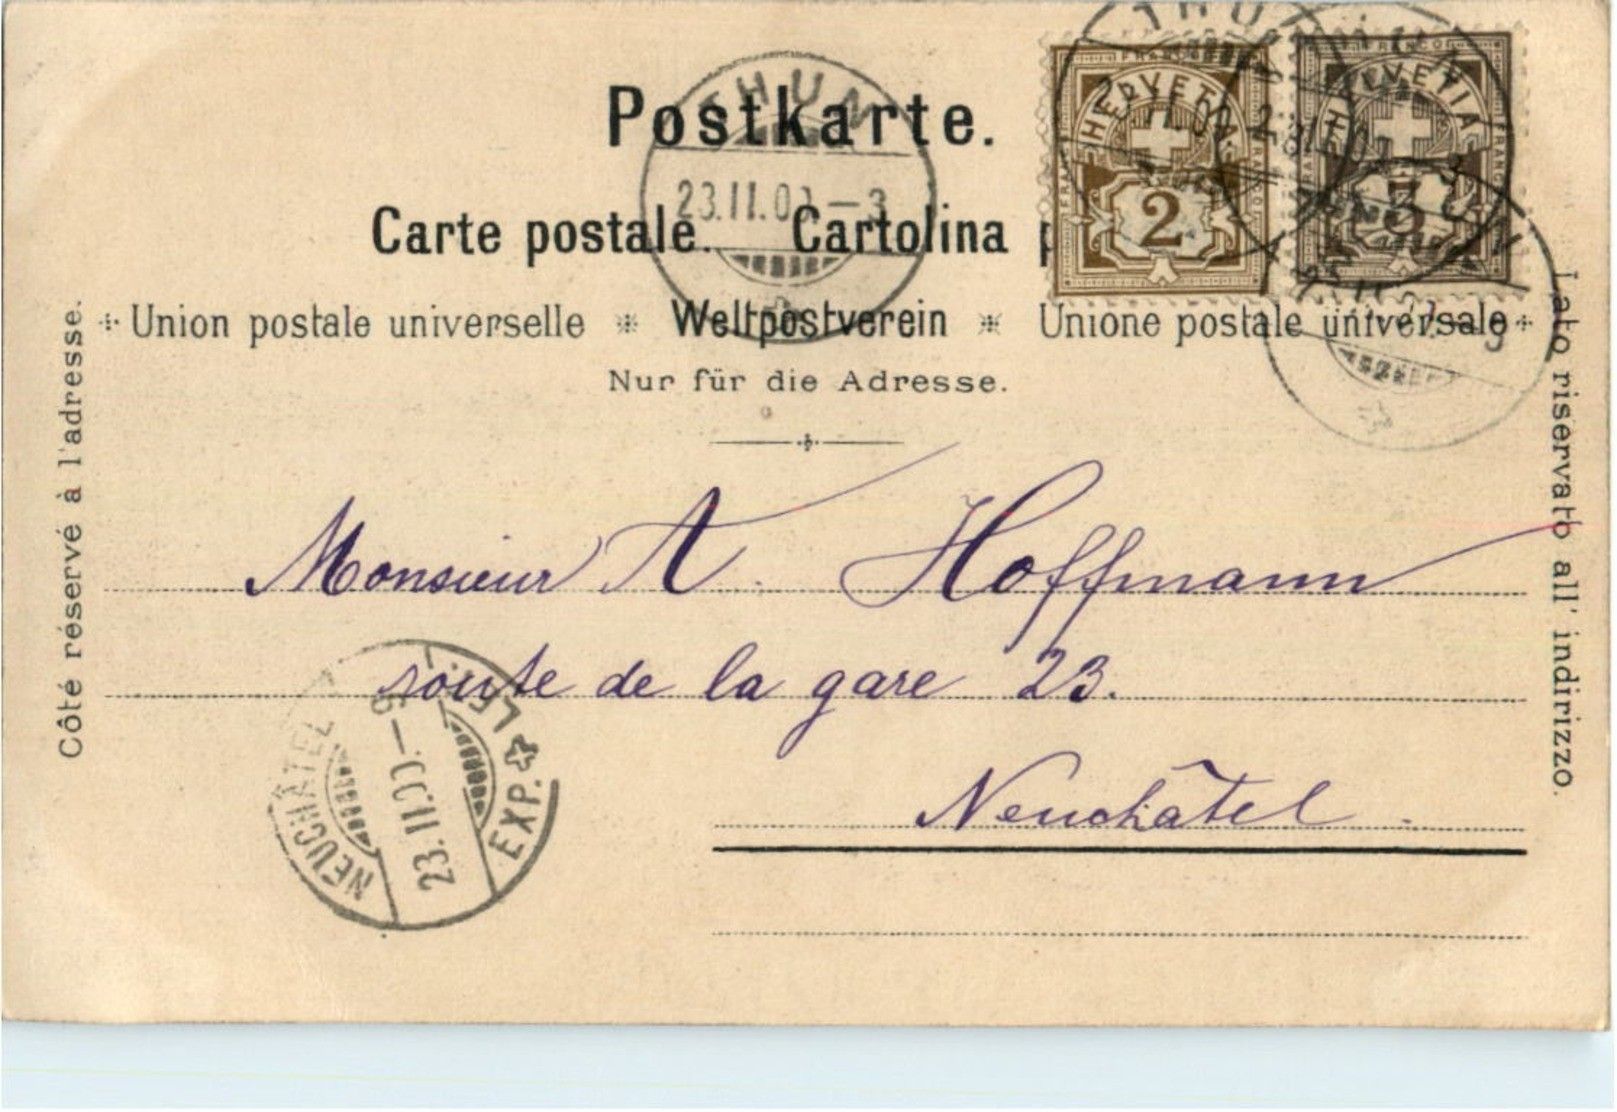 Postkarte.
Carte postale. Cartolina
Union postale universelle Weltpostverein Unione postale universale
Nur für die Adresse.
Côté réservé à l'adresse.
Lato riservato all' indirizzo.
FRANCO
HELVETIA
2
FRANCO
HELVETIA
3
THUN
23.II.00.-3
Monsieur A. Hoffmann
route de la gare 23.
Neuchâtel.
NEUCHÂTEL
23.II.00.-9
EXP. LE